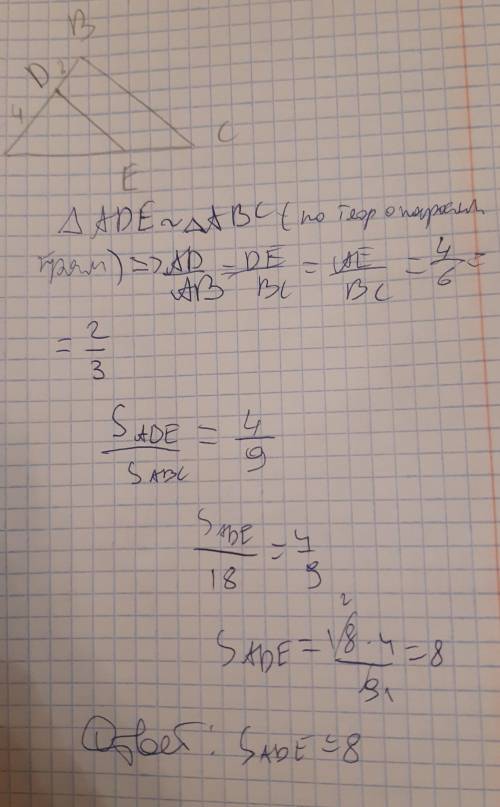 B
D 2
4
C
E
△ADE ~ △ABC (по теор о паралл
прям) => AD/AB = DE/BC = AE/BC = 4/6 =
= 2/3
S_ADE/S_ABC = 4/9
S_ADE/18 = 4/9
S_ADE = 18·4/9 = 8
2
1
Ответ: S_ADE = 8